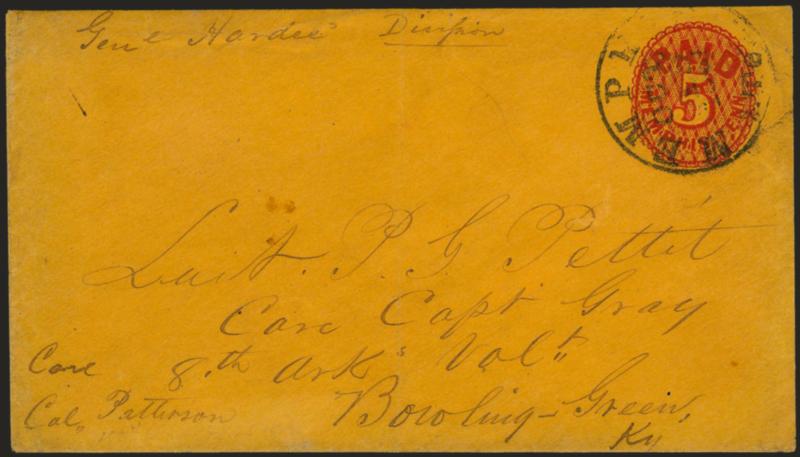 Genl Hardee's Division
PAID
5
MEMPHIS, TENN.
Luit. P. G Pettit
Care Capt Gray
8th Arks Volt
Care
Col, Patterson
Bowling-Green,
Ky